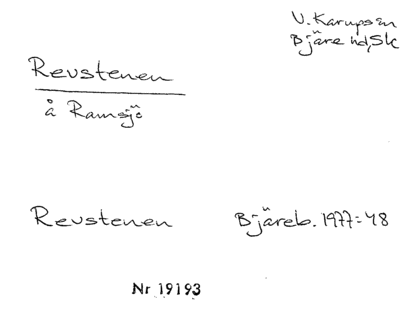 V. Karupsån
Bjäre hd, Sk
Revstenen
å Ramsjö
Revstenen Bjäreb. 1977:48
Nr 19193